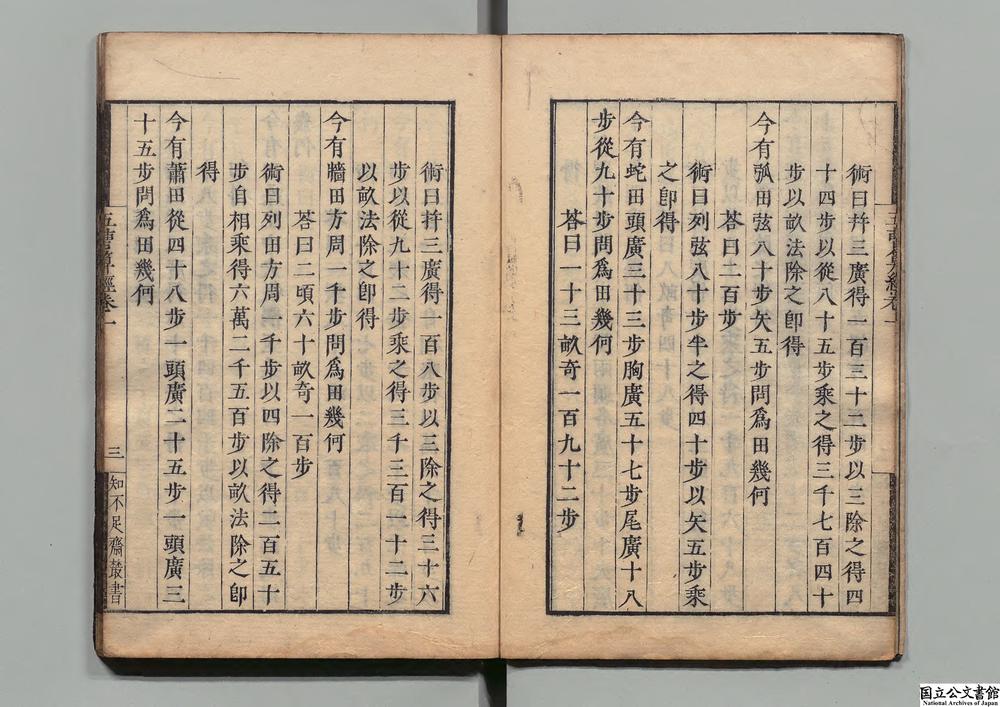 術曰幷三廣得一百三十二步以三除之得四
十四步以從八十五步乘之得三千七百四十
步以畝法除之卽得
今有弧田弦八十步矢五步問爲田幾何
答曰二百步
術曰列弦八十步半之得四十步以矢五步乘
之卽得
今有蛇田頭廣三十三步胸廣五十七步尾廣十八
步從九十步問爲田幾何
答曰一十三畝奇一百九十二步
術曰幷三廣得一百八步以三除之得三十六
步以從九十二步乘之得三千三百一十二步
以畝法除之卽得
今有牆田方周一千步問爲田幾何
答曰二頃六十畝奇一百步
術曰列田方周一千步以四除之得二百五十
步自相乘得六萬二千五百步以畝法除之卽
得
今有蕭田從四十八步一頭廣二十五步一頭廣三
十五步問爲田幾何
五曹算經卷一
三
知不足齋叢書
国立公文書館
National Archives of Japan